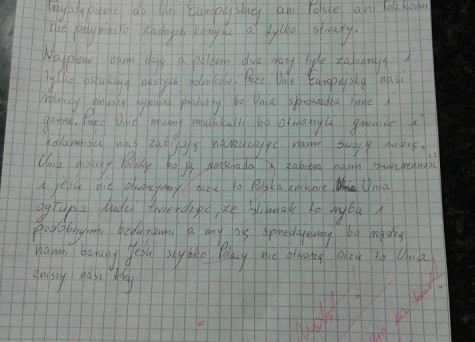 Przystąpienie do Unii Europejskiej ani Polsce ani Polakom
nie przyniosło żadnych korzyści a tylko straty.
Najpierw nam dają a potem dwa razy tyle zabierają i
tylko oszukują naszych rolników. Przez Unię Europejską nasi
rolnicy muszą produkty bo Unia sprowadza inne i
gorsze. Przez Unię mamy multikulti bo otworzyła granice i
islamiści nas zabijają narzucając nam swoją wiarę.
Unia niszczy Polskę bo ją rozkrada i zabiera nam suwerenność
i jeśli nie otworzymy oczu to Polska zniknie. Unia
ogłupia ludzi twierdząc, że ślimak to ryba i
podobnymi bzdurami a my się sprzedajemy bo rządzą
nami barany. Jeśli szybko Polacy nie otworzą oczu to Unia
zniszczy nasz kraj